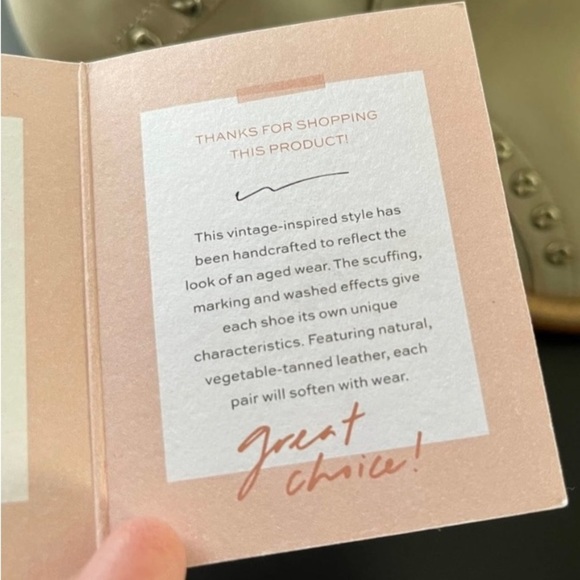 THANKS FOR SHOPPING
THIS PRODUCT!
This vintage-inspired style has
been handcrafted to reflect the
look of an aged wear. The scuffing,
marking and washed effects give
each shoe its own unique
characteristics. Featuring natural,
vegetable-tanned leather, each
pair will soften with wear.
great
choice!